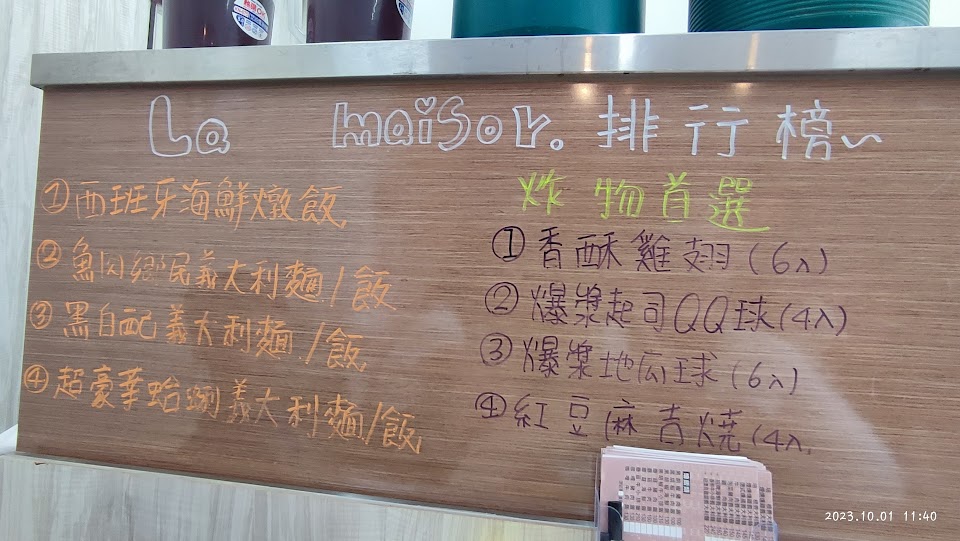 La maison. 排行榜~
①西班牙海鮮燉飯
②魚肉鄉民義大利麵/飯
③黑白配義大利麵/飯
④超豪華蛤蜊義大利麵/飯
炸物首選
①香酥雞翅(6入)
②爆漿起司QQ球(4入)
③爆漿地瓜球(6入)
④紅豆麻吉燒(4入
2023.10.01 11:40